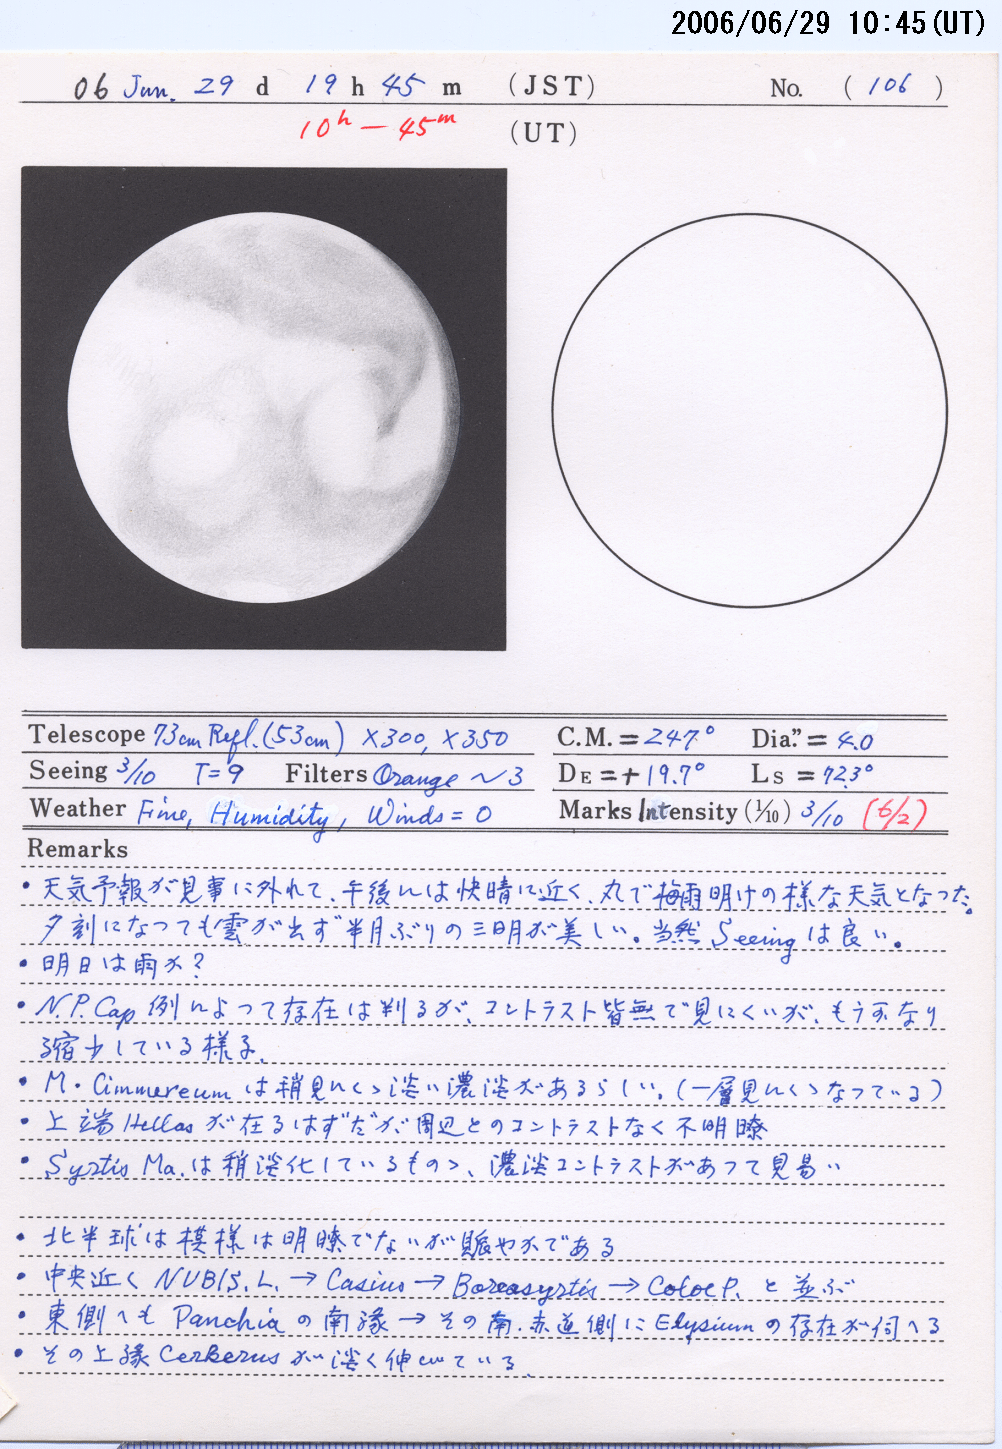 2006/06/29 10:45(UT)
06 Jun. 29 d 19 h 45 m (JST) No. (106)
10h-45m (UT)
Telescope 73cm Refl.(53cm) ×300, ×350
C.M.=247° Dia."=4.0
Seeing 3/10 T=9 Filters Orange ~3
DE=+19.7° Ls=72.3°
Weather Fine, Humidity, Winds=0
Marks Intensity(1/10) 3/10 (6/2)
Remarks
・天気予報が見事に外れて、午後には快晴に近く、丸で梅雨明けの様な天気となった。
夕刻になっても雲が出ず半月ぶりの三明が美しい。当然Seeingは良い。
・明日は雨か?
・N.P.Cap 例によって存在は判るが、コントラスト皆無で見にくいが、もう可なり
縮少している様子。
・M.Cimmereumは稍見にくゝ淡い濃淡があるらしい。(一層見にくゝなっている)
・上端Hellasが在るはずだが周辺とのコントラストなく不明瞭
・Syrtis Ma.は稍淡化しているものゝ、濃淡コントラストがあって見易い
・北半球は模様は明瞭でないが賑やかである
・中央近く NUBIS.L.→Casius→Boreosyrtis→ColoeP.と並ぶ
・東側へも Panchiaの南縁→その南.赤道側にElysiumの存在が伺へる
・その上縁Cerberusが淡く伸びている